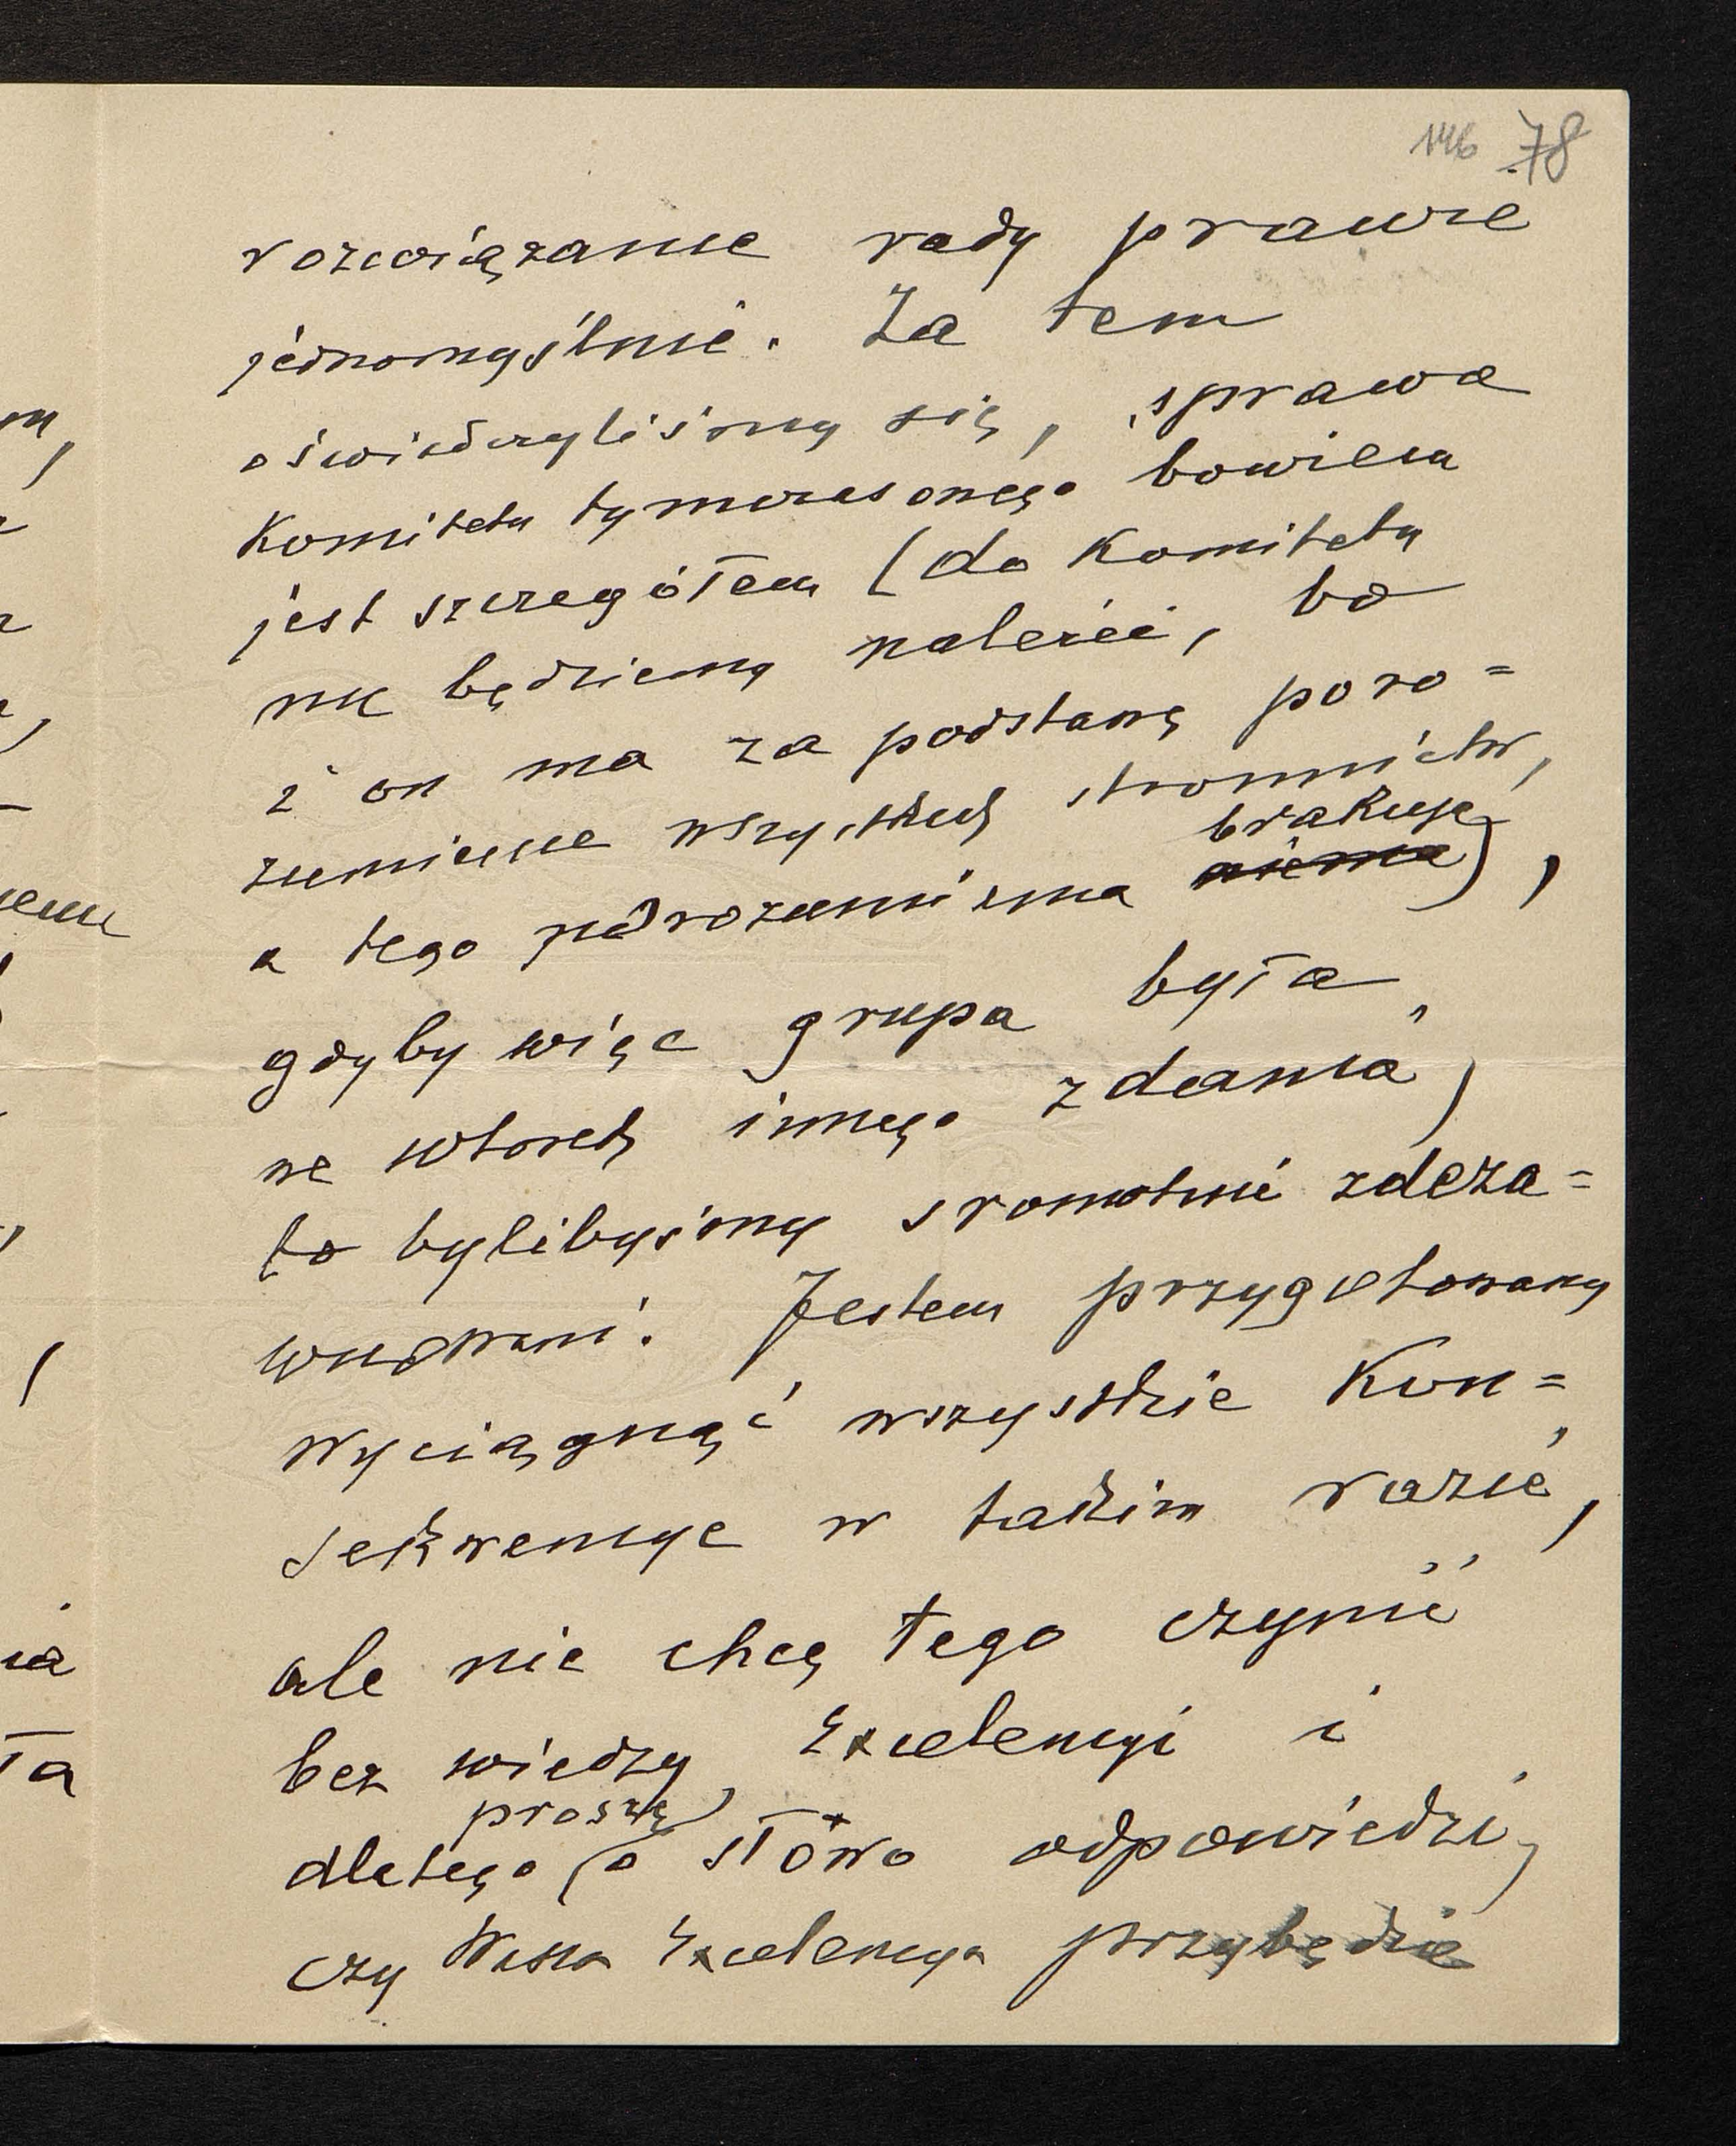 146 78
rozwiązanie rady prawie
jednomyślnie. Za tem
oświadczyliśmy się, sprawa
Komitetu tymczasonego bowiem
jest szczegółem (do Komitetu
nie będziemy należeć, bo
i on ma za podstawę poro=
zumienie wszystkich stronnictw,
a tego porozumienia niema brakuje),
gdyby więc grupa była
we wtorek innego zdania,
to bylibyśmy sromotnie zdeza=
wuowani. Jestem przygotowany
wyciągnąć wszystkie Kon=
sekwencye w takim razie,
ale nie chcę tego czynić
bez wiedzy Excelencyi i
dlatego proszę o słowo odpowiedzi,
czy Wasza Excelencya przybędzie